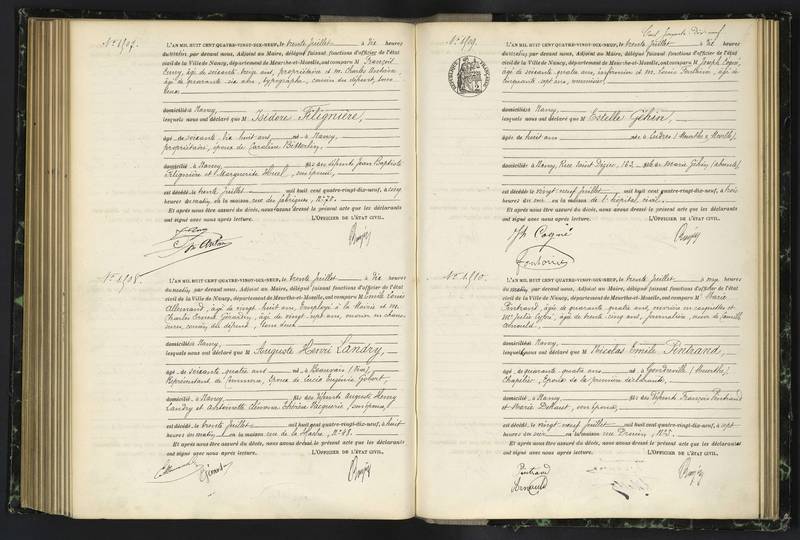 N° 1507.
L'AN MIL HUIT CENT QUATRE-VINGT-DIX-NEUF, le trente juillet à dix heures
du matin par devant nous, Adjoint au Maire, délégué faisant fonctions d'officier de l'état
civil de la Ville de Nancy, département de Meurthe-et-Moselle, ont comparu M François
âgé de soixante treize ans, propriétaire et M. Charles Antoine,
âgé de quarante six ans, typographe, cousin du défunt, tous
deux
domiciliés à Nancy,
lesquels nous ont déclaré que M Isidore Féligniére,
âgé de soixante dix huit ans né à Nancy,
propriétaire, époux de Caroline
domicilié à Nancy fils de défunts Jean Baptiste
Féligniére et Marguerite Huel, son épouse,
est décédé le trente juillet mil huit cent quatre-vingt-dix-neuf, à cinq
heures du matin, en la maison rue des fabriques, N° 70.
Et après nous être assuré du décès, nous avons dressé le présent acte que les déclarants
ont signé avec nous après lecture. L'OFFICIER DE L'ÉTAT CIVIL,
N° 1508.
L'AN MIL HUIT CENT QUATRE-VINGT-DIX-NEUF, le trente juillet à dix heures
du matin par devant nous, Adjoint au Maire, délégué faisant fonctions d'officier de l'état
civil de la Ville de Nancy, département de Meurthe-et-Moselle, ont comparu M Emile Louis
Allemand, âgé de vingt huit ans, Employé à la Mairie et M.
Charles Ernest Girardin, âgé de vingt sept ans, ouvrier en chaus
sures, cousin du défunt, tous deux
domiciliés à Nancy
lesquels nous ont déclaré que M Auguste Henri Landry,
âgé de soixante quatre ans né à Beauvais (Oise),
Représentant de commerce, époux de Lucie Eugénie Gobert,
domicilié à Nancy fils de défunts Auguste Henry
Landry et Antoinette Thérèse son épouse,
est décédé le trente juillet mil huit cent quatre-vingt-dix-neuf, à huit
heures du matin, en la maison rue de la Hache, N° 48.
Et après nous être assuré du décès, nous avons dressé le présent acte que les déclarants
ont signé avec nous après lecture. L'OFFICIER DE L'ÉTAT CIVIL,
N° 1509.
L'AN MIL HUIT CENT QUATRE-VINGT-DIX-NEUF, le trente juillet à dix heures
du matin par devant nous, Adjoint au Maire, délégué faisant fonctions d'officier de l'état
civil de la Ville de Nancy, département de Meurthe-et-Moselle, ont comparu M Joseph Cogné,
âgé de soixante quatre ans, infirmier et M. Louis Fontaine, âgé de
cinquante sept ans,
domiciliés à Nancy
lesquels nous ont déclaré que M Estelle Géhin,
âgée de huit ans née à Ludres (Meurthe & Moselle),
domiciliée à Nancy, Rue Saint Dizier, 162 fille de Marie Géhin (absente),
est décédée le vingt neuf juillet mil huit cent quatre-vingt-dix-neuf, à trois
heures du soir en la maison de l'hôpital civil.
Et après nous être assuré du décès, nous avons dressé le présent acte que les déclarants
ont signé avec nous après lecture. L'OFFICIER DE L'ÉTAT CIVIL,
Jh Cogné
N° 1510.
L'AN MIL HUIT CENT QUATRE-VINGT-DIX-NEUF, le trente juillet à onze heures
du matin par devant nous, Adjoint au Maire, délégué faisant fonctions d'officier de l'état
civil de la Ville de Nancy, département de Meurthe-et-Moselle, ont comparu M Marie
Pintrand, âgée de quarante quatre ans, ouvrière en casquettes et
âgé de trente cinq ans, journalière, veuve de Camille
Arnould,
domiciliés à Nancy
lesquelles nous ont déclaré que M Nicolas Emile Pintrand,
âgé de quarante quatre ans né à Gondreville (Meurthe),
Chapelier, époux de la première déclarante,
domicilié à Nancy fils de défunts François Pintrand
et Marie son épouse,
est décédé le vingt neuf juillet mil huit cent quatre-vingt-dix-neuf, à sept
heures du soir en la maison rue Drouin, N° 3.
Et après nous être assuré du décès, nous avons dressé le présent acte que les déclarants
ont signé avec nous après lecture. L'OFFICIER DE L'ÉTAT CIVIL,
Pintrand
Arnould